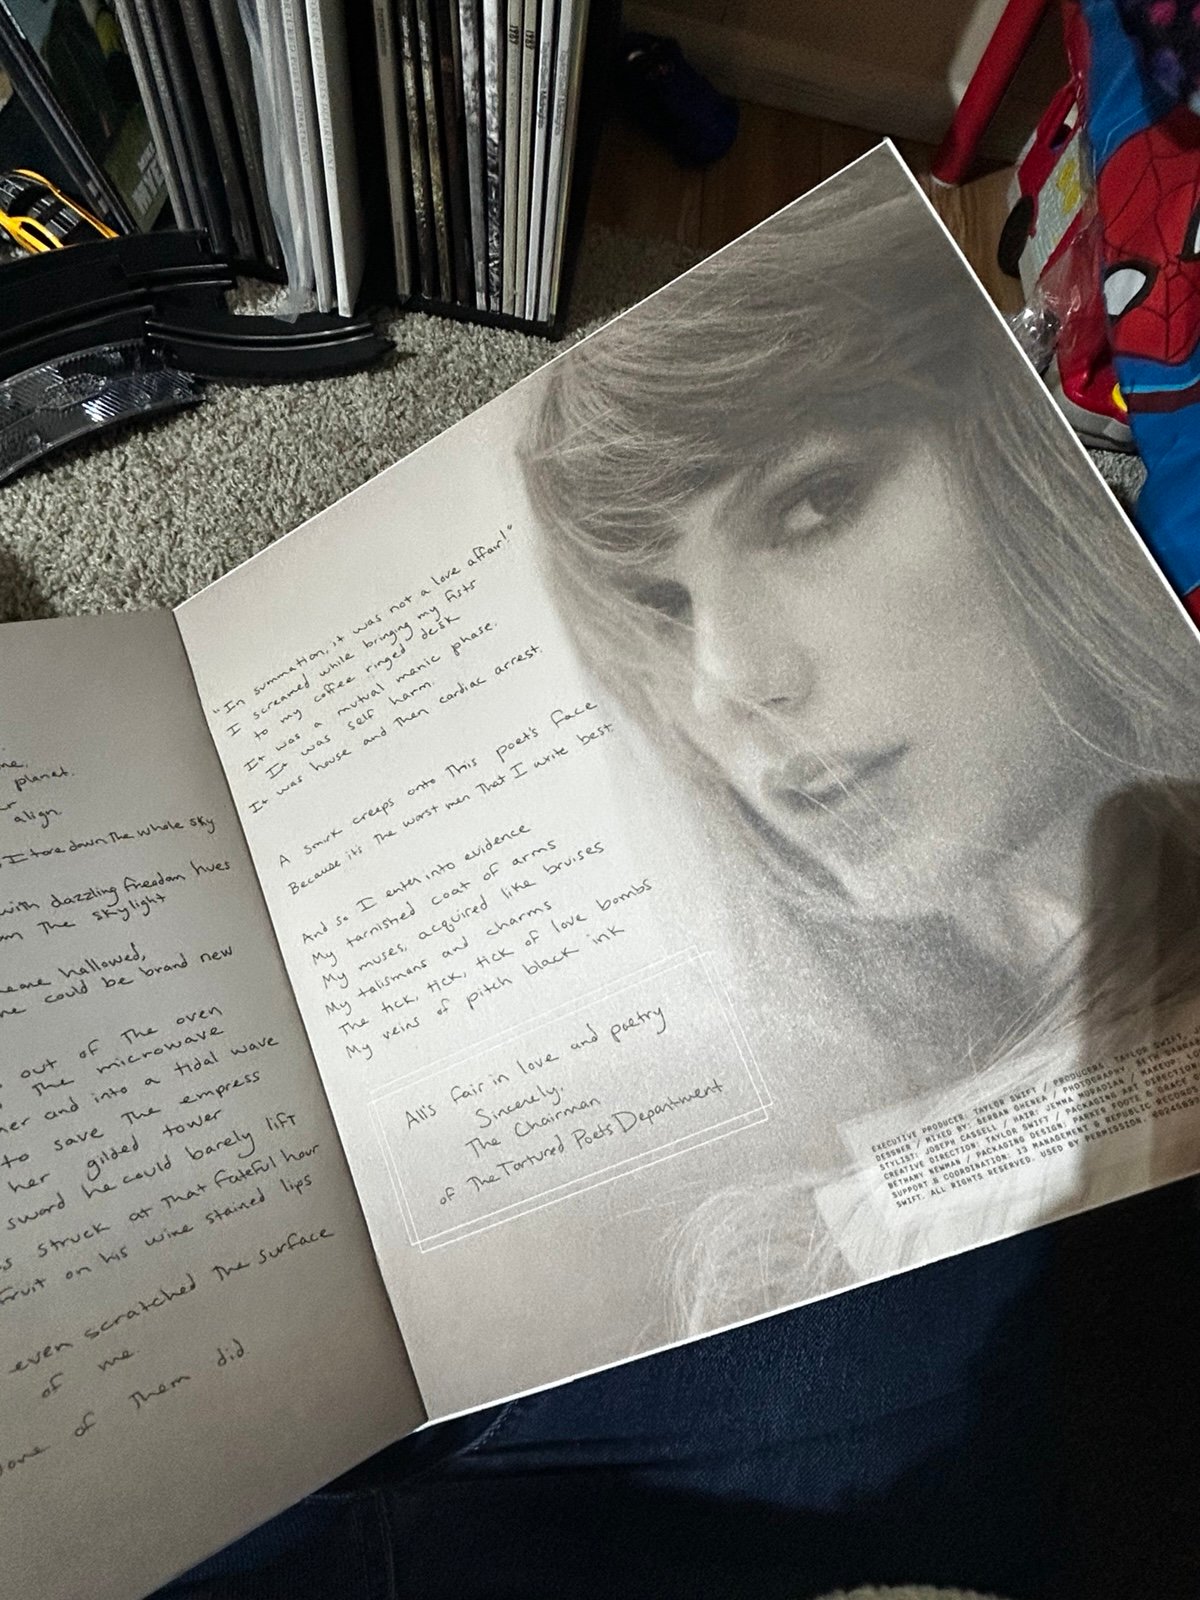 planet.
align.
I tore down the whole sky
with dazzling freedom hues
the skylight
hallowed,
could be brand new
out of the oven
the microwave
and into a tidal wave
to save the empress
her gilded tower
sword he could barely lift
struck at that fateful hour
fruit on his wine stained lips
even scratched the surface
of me.
of them did
"In summation, it was not a love affair!"
I screamed while bringing my fists
to my coffee ringed desk
It was a mutual manic phase.
It was self harm.
It was house and then cardiac arrest.
A smirk creeps onto this poet's face
Because it's the worst men that I write best.
And so I enter into evidence
My tarnished coat of arms
My muses, acquired like bruises
My talismans and charms
The tick, tick, tick of love bombs
My veins of pitch black ink
All's fair in love and poetry
Sincerely,
The Chairman
of The Tortured Poets Department
EXECUTIVE PRODUCER: TAYLOR SWIFT / PRODUCERS: TAYLOR SWIFT,
DESSNER / MIXED BY: SERBAN GHENEA / PHOTOGRAPHY: BETH
STYLIST: JOSEPH CASSELL / HAIR: JEMMA MURADIAN / MAKEUP:
CREATIVE DIRECTION: TAYLOR SWIFT / PACKAGING ART DIRECTION
BETHANY NEWMAN / PACKAGING DESIGN: PARKER FOOTE &
SUPPORT & COORDINATION: 13 MANAGEMENT & REPUBLIC RECORDS
SWIFT. ALL RIGHTS RESERVED. USED BY PERMISSION.
1989
1989